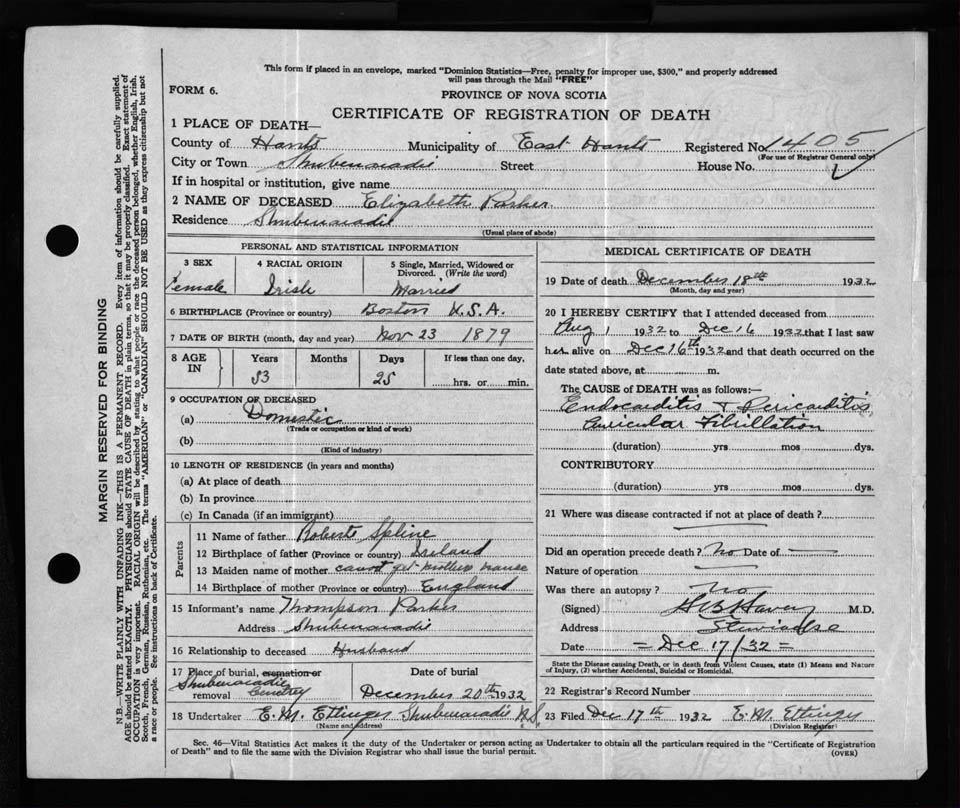 This form if placed in an envelope, marked "Dominion Statistics—Free, penalty for improper use, $300," and properly addressed
will pass through the Mail "FREE"
FORM 6.
PROVINCE OF NOVA SCOTIA
CERTIFICATE OF REGISTRATION OF DEATH
1 PLACE OF DEATH—
County of Hants Municipality of East Hants Registered No. 1405
(For use of Registrar General only)
City or Town Shubenacadie Street House No.
If in hospital or institution, give name
2 NAME OF DECEASED Elizabeth Parker
Residence Shubenacadie
(Usual place of abode)
PERSONAL AND STATISTICAL INFORMATION
3 SEX 4 RACIAL ORIGIN 5 Single, Married, Widowed or
Divorced. (Write the word)
Female Irish Married
6 BIRTHPLACE (Province or country) Boston U.S.A.
7 DATE OF BIRTH (month, day and year) Nov 23 1879
8 AGE IN Years Months Days If less than one day,
53 25 hrs. or min.
9 OCCUPATION OF DECEASED
(a) Domestic
(Trade or occupation or kind of work)
(b)
(Kind of industry)
10 LENGTH OF RESIDENCE (in years and months)
(a) At place of death
(b) In province
(c) In Canada (if an immigrant)
Parents
11 Name of father Robert Spline
12 Birthplace of father (Province or country) Ireland
13 Maiden name of mother cannot get mothers name
14 Birthplace of mother (Province or country) England
15 Informant's name Thompson Parker
Address Shubenacadie
16 Relationship to deceased Husband
17 Place of burial, cremation or Date of burial
removal Shubenacadie Cemetery December 20th 1932
18 Undertaker E. M. Ettinger Shubenacadie N.S.
(Name and address)
MEDICAL CERTIFICATE OF DEATH
19 Date of death December 18th 1932
(Month, day and year)
20 I HEREBY CERTIFY that I attended deceased from
Aug 1 1932 to Dec 16 1932 that I last saw
her alive on Dec 16th 1932 and that death occurred on the
date stated above, at m.
The CAUSE of DEATH was as follows:—
Endocarditis + Pericarditis
Auricular Fibrillation
(duration) yrs mos dys.
CONTRIBUTORY
(duration) yrs mos dys.
21 Where was disease contracted if not at place of death?
Did an operation precede death? No Date of —
Nature of operation —
Was there an autopsy? No
(Signed) M.D.
Address Stewiacke
Date = Dec 17/32 =
State the Disease causing Death, or in death from Violent Causes, state (1) Means and Nature
of Injury, (2) whether Accidental, Suicidal or Homicidal.
22 Registrar's Record Number
23 Filed Dec 17th 1932 E. M. Ettinger
(Division Registrar)
Sec. 46—Vital Statistics Act makes it the duty of the Undertaker or person acting as Undertaker to obtain all the particulars required in the "Certificate of Registration
of Death" and to file the same with the Division Registrar who shall issue the burial permit.
(OVER)
MARGIN RESERVED FOR BINDING
N.B.—WRITE PLAINLY WITH UNFADING INK—THIS IS A PERMANENT RECORD. Every item of information should be carefully supplied.
AGE should be stated EXACTLY. PHYSICIANS should STATE CAUSE OF DEATH in plain terms, so that it may be properly classified. Exact statement of
OCCUPATION is very important. RACIAL ORIGIN will be described by stating to what people or race the deceased person belonged, whether English, Irish,
Scotch, French, German, Russian, Ruthenian, etc. The terms "AMERICAN" or "CANADIAN" SHOULD NOT BE USED as they express citizenship but not
a race or people. See instructions on back of Certificate.